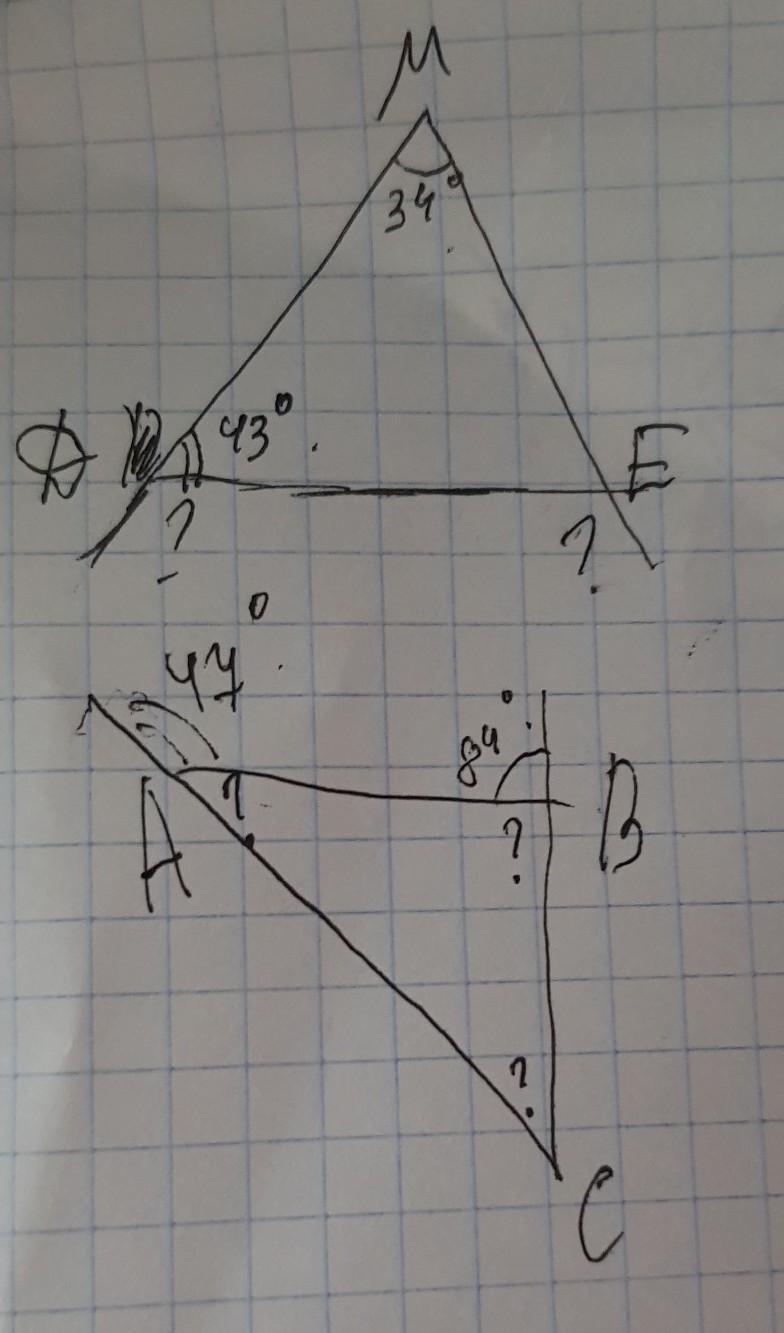 M
34°
D 43° E
? ?
47°
84°
A ? ? B
?
C